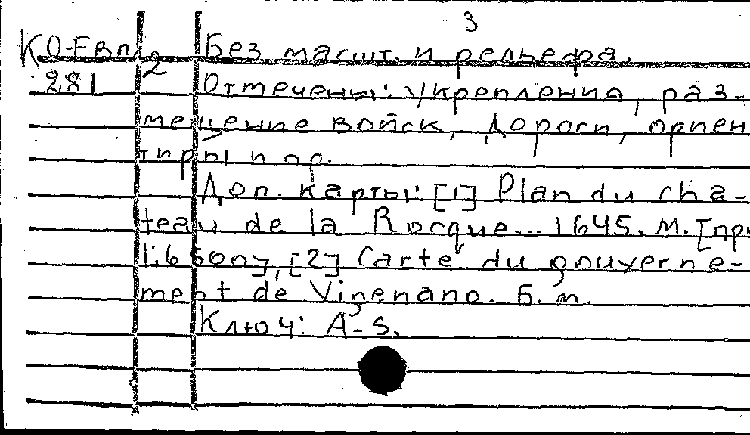 3
КО-Евп/2 Без масшт. и рельефа.
281 Отмечены: укрепления, раз-
мещение войск, дороги, ориен
тиры и др.
Доп. карты: [1] Plan du cha-
teau de la Rocque... 1645. М. [пр
1:6 500], [2] Carte du gouverne-
ment de Б.м.
Ключ: A-S.